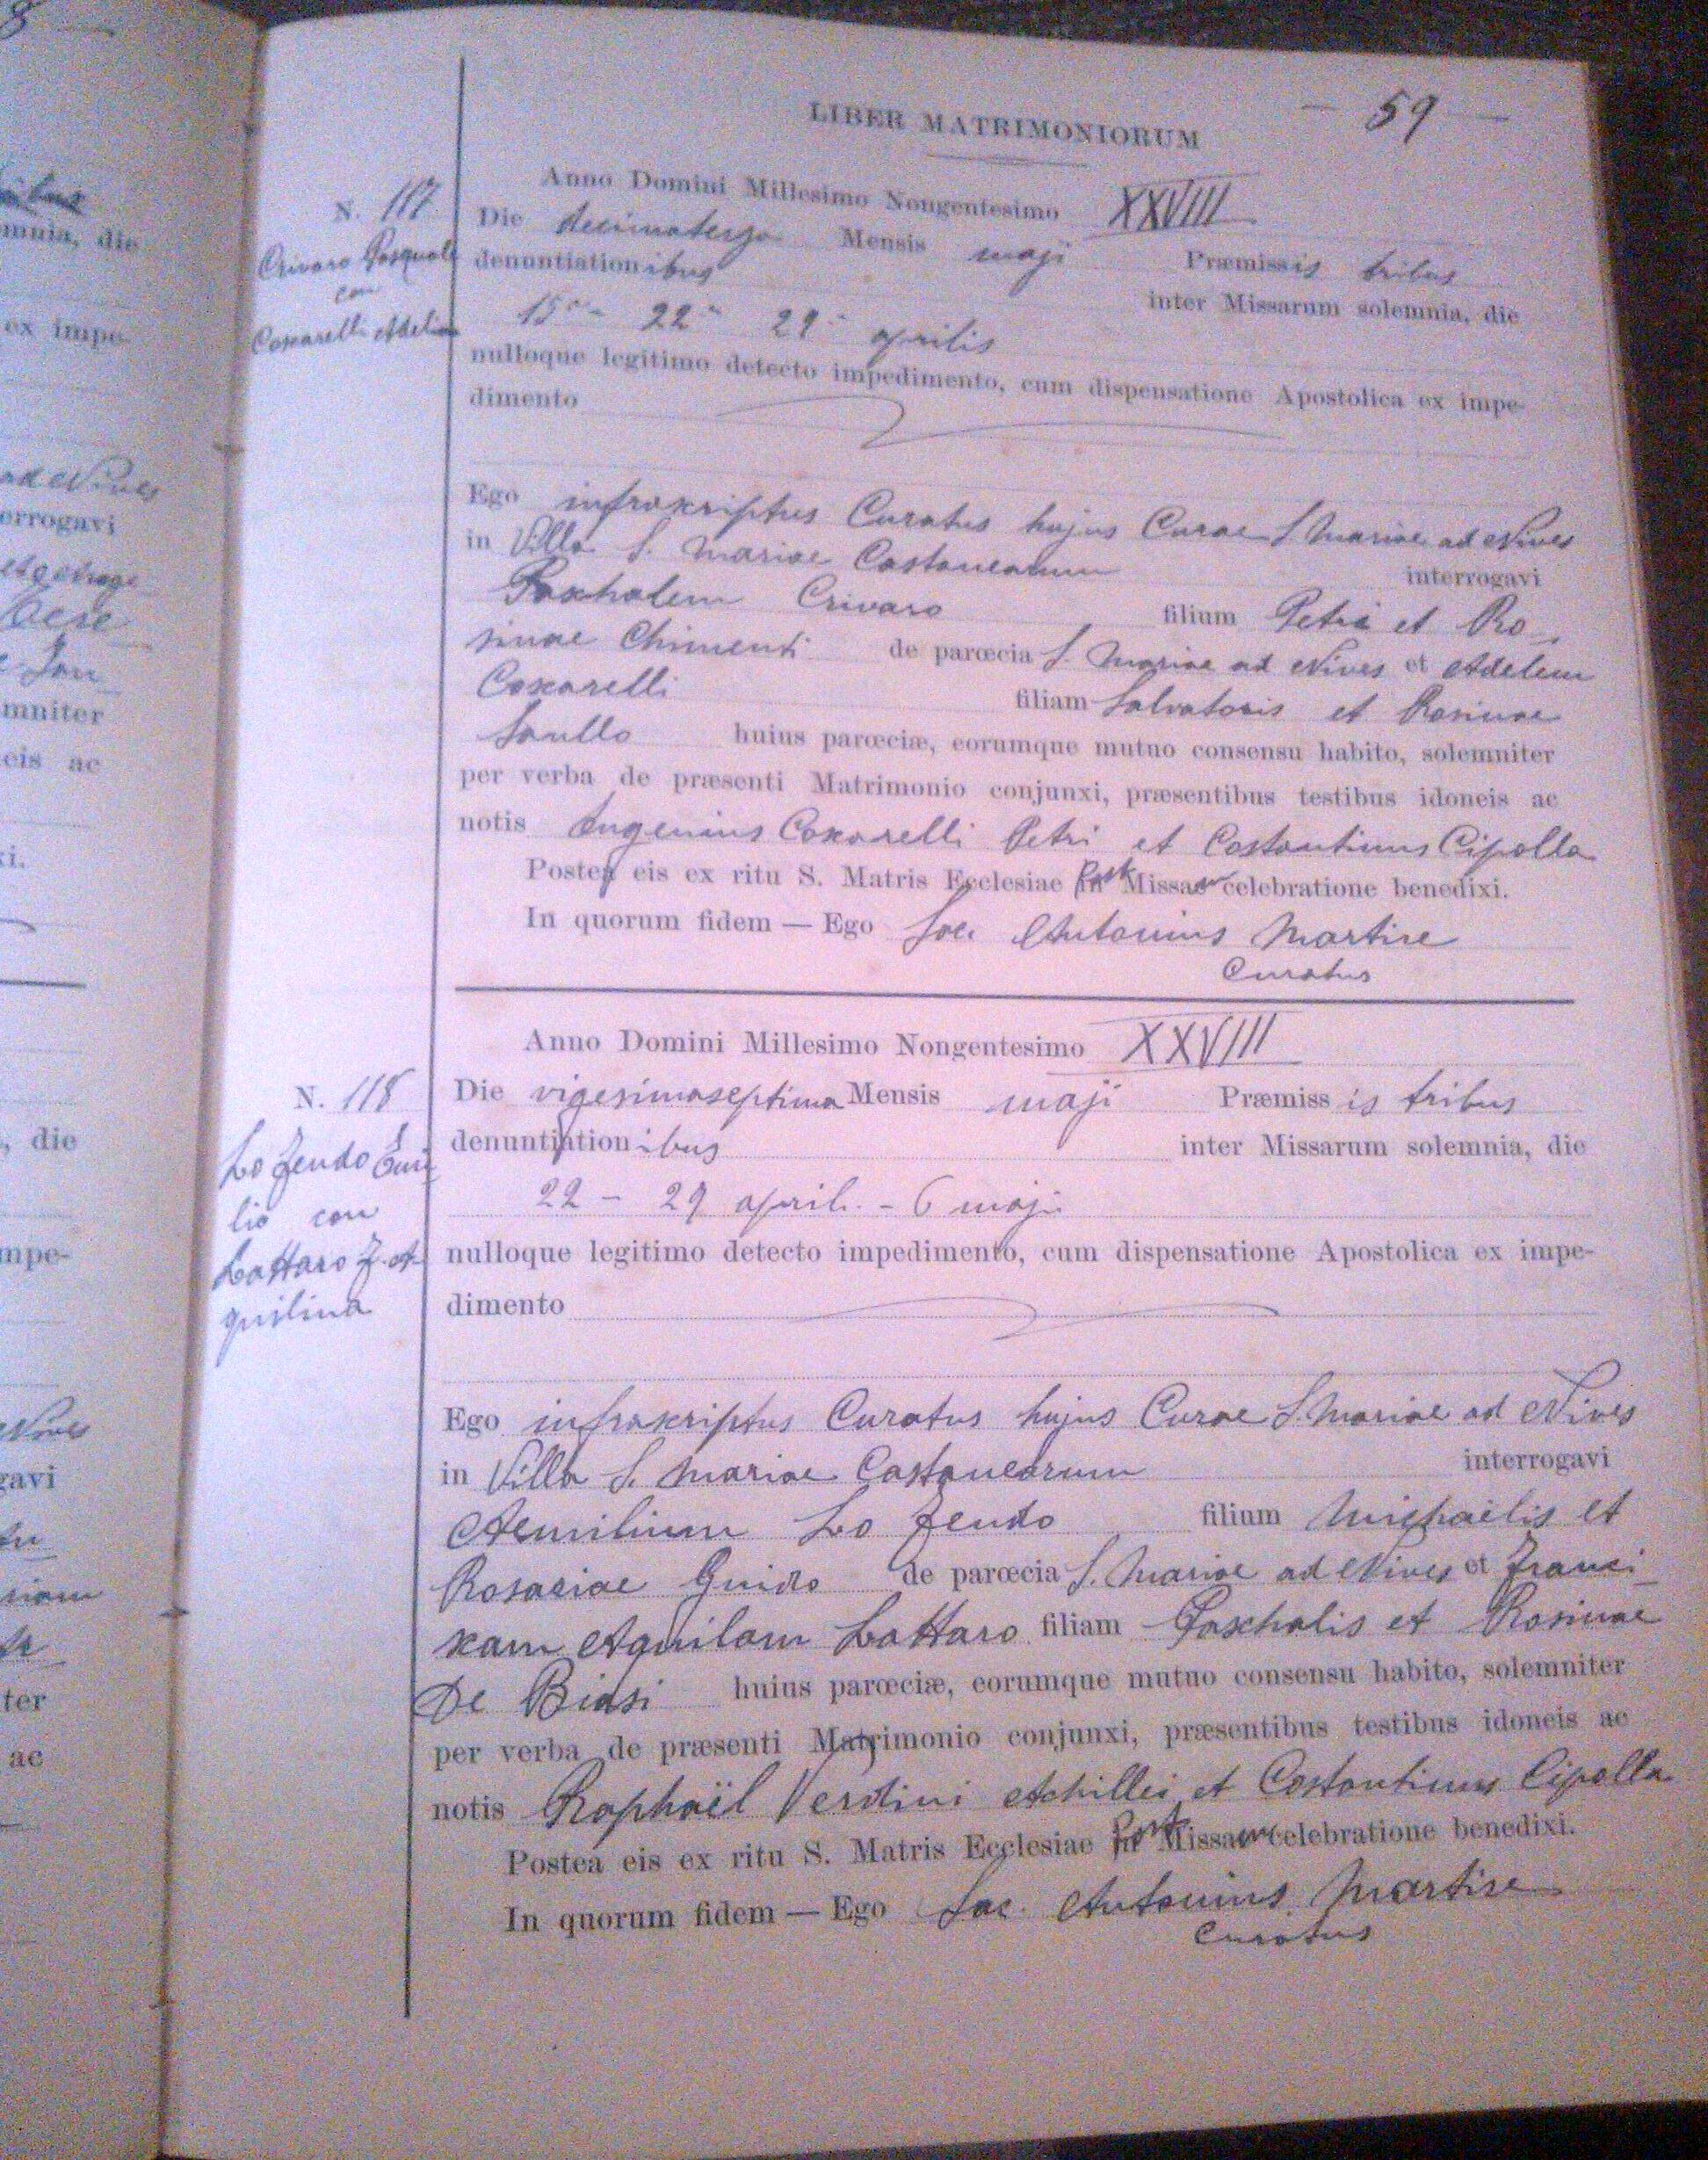 59
LIBER MATRIMONIORUM
Anno Domini Millesimo Nongentesimo XXVIII
N. 117
Die decimaterza Mensis maji Præmissis tribus
Crivaro Pasquale
con
Coscarelli Adelina
denuntiationibus inter Missarum solemnia, die
15 - 22 - 29 - aprilis
nulloque legitimo detecto impedimento, cum dispensatione Apostolica ex impe-
dimento
Ego infrascriptus Curatus hujus Curae S. Mariae ad Nives
in Villa S. Mariae Castanearum interrogavi
Paschalem Crivaro filium Petri et Ro-
sinae Chimenti de parœcia S. Mariae ad Nives et Adelem
Coscarelli filiam Salvatoris et Rosinae
Saullo huius parœciæ, eorumque mutuo consensu habito, solemniter
per verba de præsenti Matrimonio conjunxi, præsentibus testibus idoneis ac
notis Eugenius Coscarelli Petri et Costantinus Cipolla
Postea eis ex ritu S. Matris Ecclesiae Post Missae celebratione benedixi.
In quorum fidem — Ego Sac. Antonius Martire
Curatus
Anno Domini Millesimo Nongentesimo XXVIII
N. 118
Die vigesimaseptima Mensis maji Præmissis tribus
Lo Feudo Emi
lio con
Lattaro F. A
quilina
denuntiationibus inter Missarum solemnia, die
22 - 29 april. - 6 maji
nulloque legitimo detecto impedimento, cum dispensatione Apostolica ex impe-
dimento
Ego infrascriptus Curatus hujus Curae S. Mariae ad Nives
in Villa S. Mariae Castanearum interrogavi
Aemilium Lo Feudo filium Michaëlis et
Rosariae Guido de parœcia S. Mariae ad Nives et Franci-
scam Aquilam Lattaro filiam Paschalis et Rosinae
De Biasi huius parœciæ, eorumque mutuo consensu habito, solemniter
per verba de præsenti Matrimonio conjunxi, præsentibus testibus idoneis ac
notis Raphaël Verdini Achillei et Costantinus Cipolla
Postea eis ex ritu S. Matris Ecclesiae Post Missam celebratione benedixi.
In quorum fidem — Ego Sac. Antonius Martire
Curatus